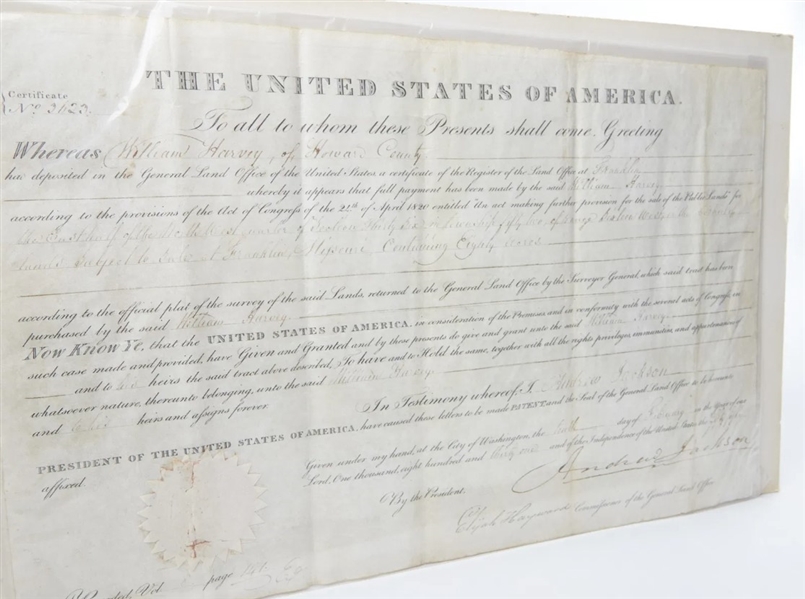 THE UNITED STATES OF AMERICA.
Certificate
No. 3623.
To all to whom these Presents shall come, Greeting
WHEREAS William Harvey, of Howard County
has deposited in the General Land Office of the United States a certificate of the Register of the Land Office at Franklin
whereby it appears that full payment has been made by the said William Harvey
according to the provisions of the Act of Congress of the 24th of April 1820 entitled An act making further provision for the sale of the Public Lands for
the East half of the quarter of Section Thirty in Township fifty of range
Lands Subject to Sale at Franklin Missouri Containing Eighty acres
according to the official plat of the survey of the said Lands, returned to the General Land Office by the Surveyor General, which said tract has been
purchased by the said William Harvey
NOW KNOW YE, that the UNITED STATES OF AMERICA, in consideration of the Premises and in conformity with the several acts of Congress, in
such case made and provided, have Given and Granted and by these presents do give and grant unto the said William Harvey
and to his heirs the said tract above described, To have and to Hold the same, together with all the rights privileges, immunities, and appurtenances of
whatsoever nature, thereunto belonging, unto the said William Harvey
and to his heirs and assigns forever.
In Testimony whereof, I Andrew Jackson
PRESIDENT OF THE UNITED STATES OF AMERICA, have caused these letters to be made PATENT, and the Seal of the General Land Office to be hereunto
affixed.
Given under my hand, at the City of Washington, the day of in the year of our
Lord, One thousand, eight hundred and thirty one and of the Independence of the United States the fifty
Andrew Jackson
By the President.
Elijah Hayward Commissioner of the General Land Office
Recorded, Vol. page